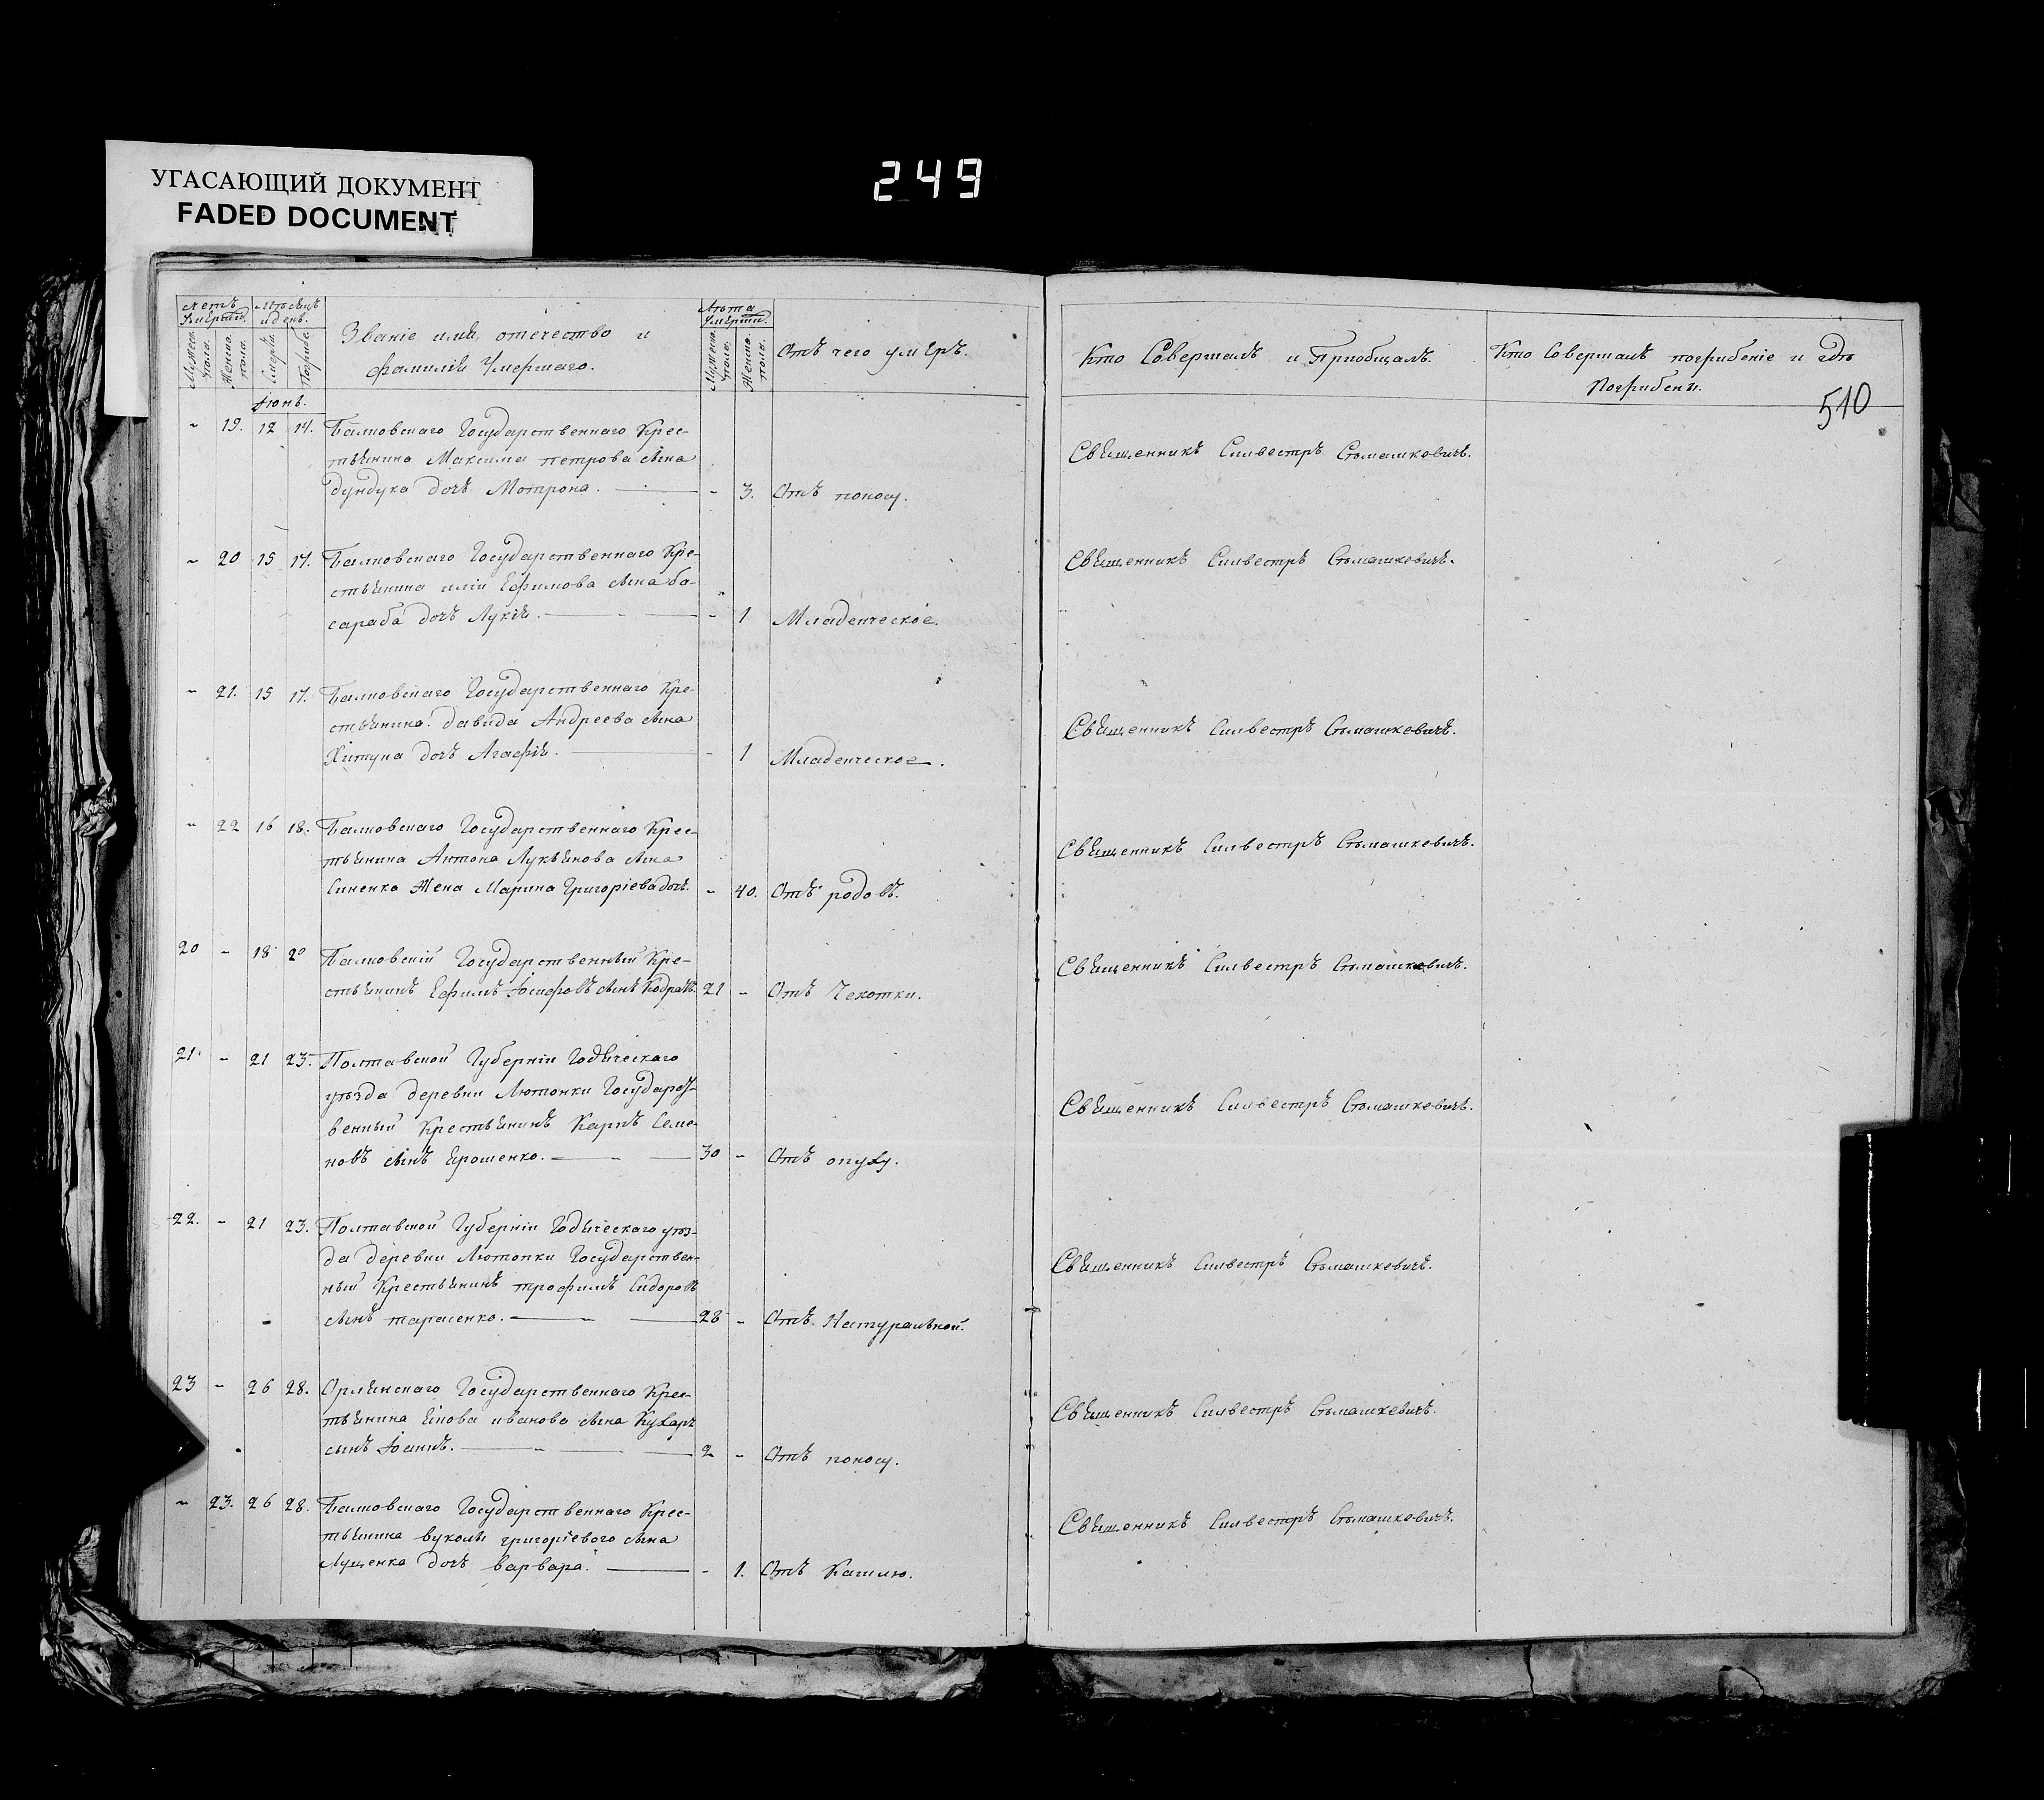 249
УГАСАЮЩИЙ ДОКУМЕНТ
FADED DOCUMENT
510
Мужеск. пола.
Женска. пола.
Смерти.
Погребе.
Званіе имя, отечество и
фамилія Умершаго.
Лѣта
Умерти.
Мужеск. пола.
Женско. пола.
Отъ чего умеръ.
Кто Совершалъ и Пріобщалъ.
Кто Совершалъ погрибеніе и гдѣ
Погрибены.
Іюнь.
- 19. 12 14. Балковскаго Государственнаго Крес-
тьянина Максима петрова сына
дундука дочь Мотрона. - 3. Отъ поносу.
Священникъ Силвестръ Стамашкевичъ.
- 20 15 17. Балковскаго Государственнаго Кре-
стьянина иліи Ефимова сына ба-
сараба дочь Лукія. - 1 Младенческое.
Священникъ Силвестръ Стамашкевичъ.
- 21. 15 17. Балковскаго Государственнаго Кре-
стьянина давида Андреева сына
Хитуна дочь Агафія. - 1 Младенческое.
Священникъ Силвестръ Стамашкевичъ.
- 22 16 18. Балковскаго Государственнаго Крес-
тьянина Антона Лукьянова сына
Синенка Жена Марина Григоріева дочь. - 40. Отъ родовъ.
Священникъ Силвестръ Стамашкевичъ.
20 - 18 20 Балковскій Государственный Кре-
стьянинъ Ефимъ Іосифовъ сынъ 21 - Отъ Чехотки.
Священникъ Силвестръ Стамашкевичъ.
21. - 21 23. Полтавской Губерніи Годяческаго
уѣзда деревни Лютонки Государст-
венный Крестьянинъ Карпъ Семе-
новъ сынъ Ярошенко. 30 - Отъ опуху.
Священникъ Силвестръ Стамашкевичъ.
22. - 21 23. Полтавской Губерніи Годяческаго уѣз-
да деревни Лютонки Государствен-
ный Крестьянинъ трофимъ Сидоровъ
сынъ тарасенко. 28 - Отъ Натуральной.
Священникъ Силвестръ Стамашкевичъ.
23 - 26 28. Орлянскаго Государственнаго Крес-
тьянина Якова иванова сына Кухаръ
сынъ Іоаннъ. 2 - Отъ поносу.
Священникъ Силвестръ Стамашкевичъ.
- 23. 26 28. Балковскаго Государственнаго Крес-
тьянина вукола григоріевого сына
Лущенка дочь варвара. - 1. Отъ Кашлю.
Священникъ Силвестръ Стамашкевичъ.